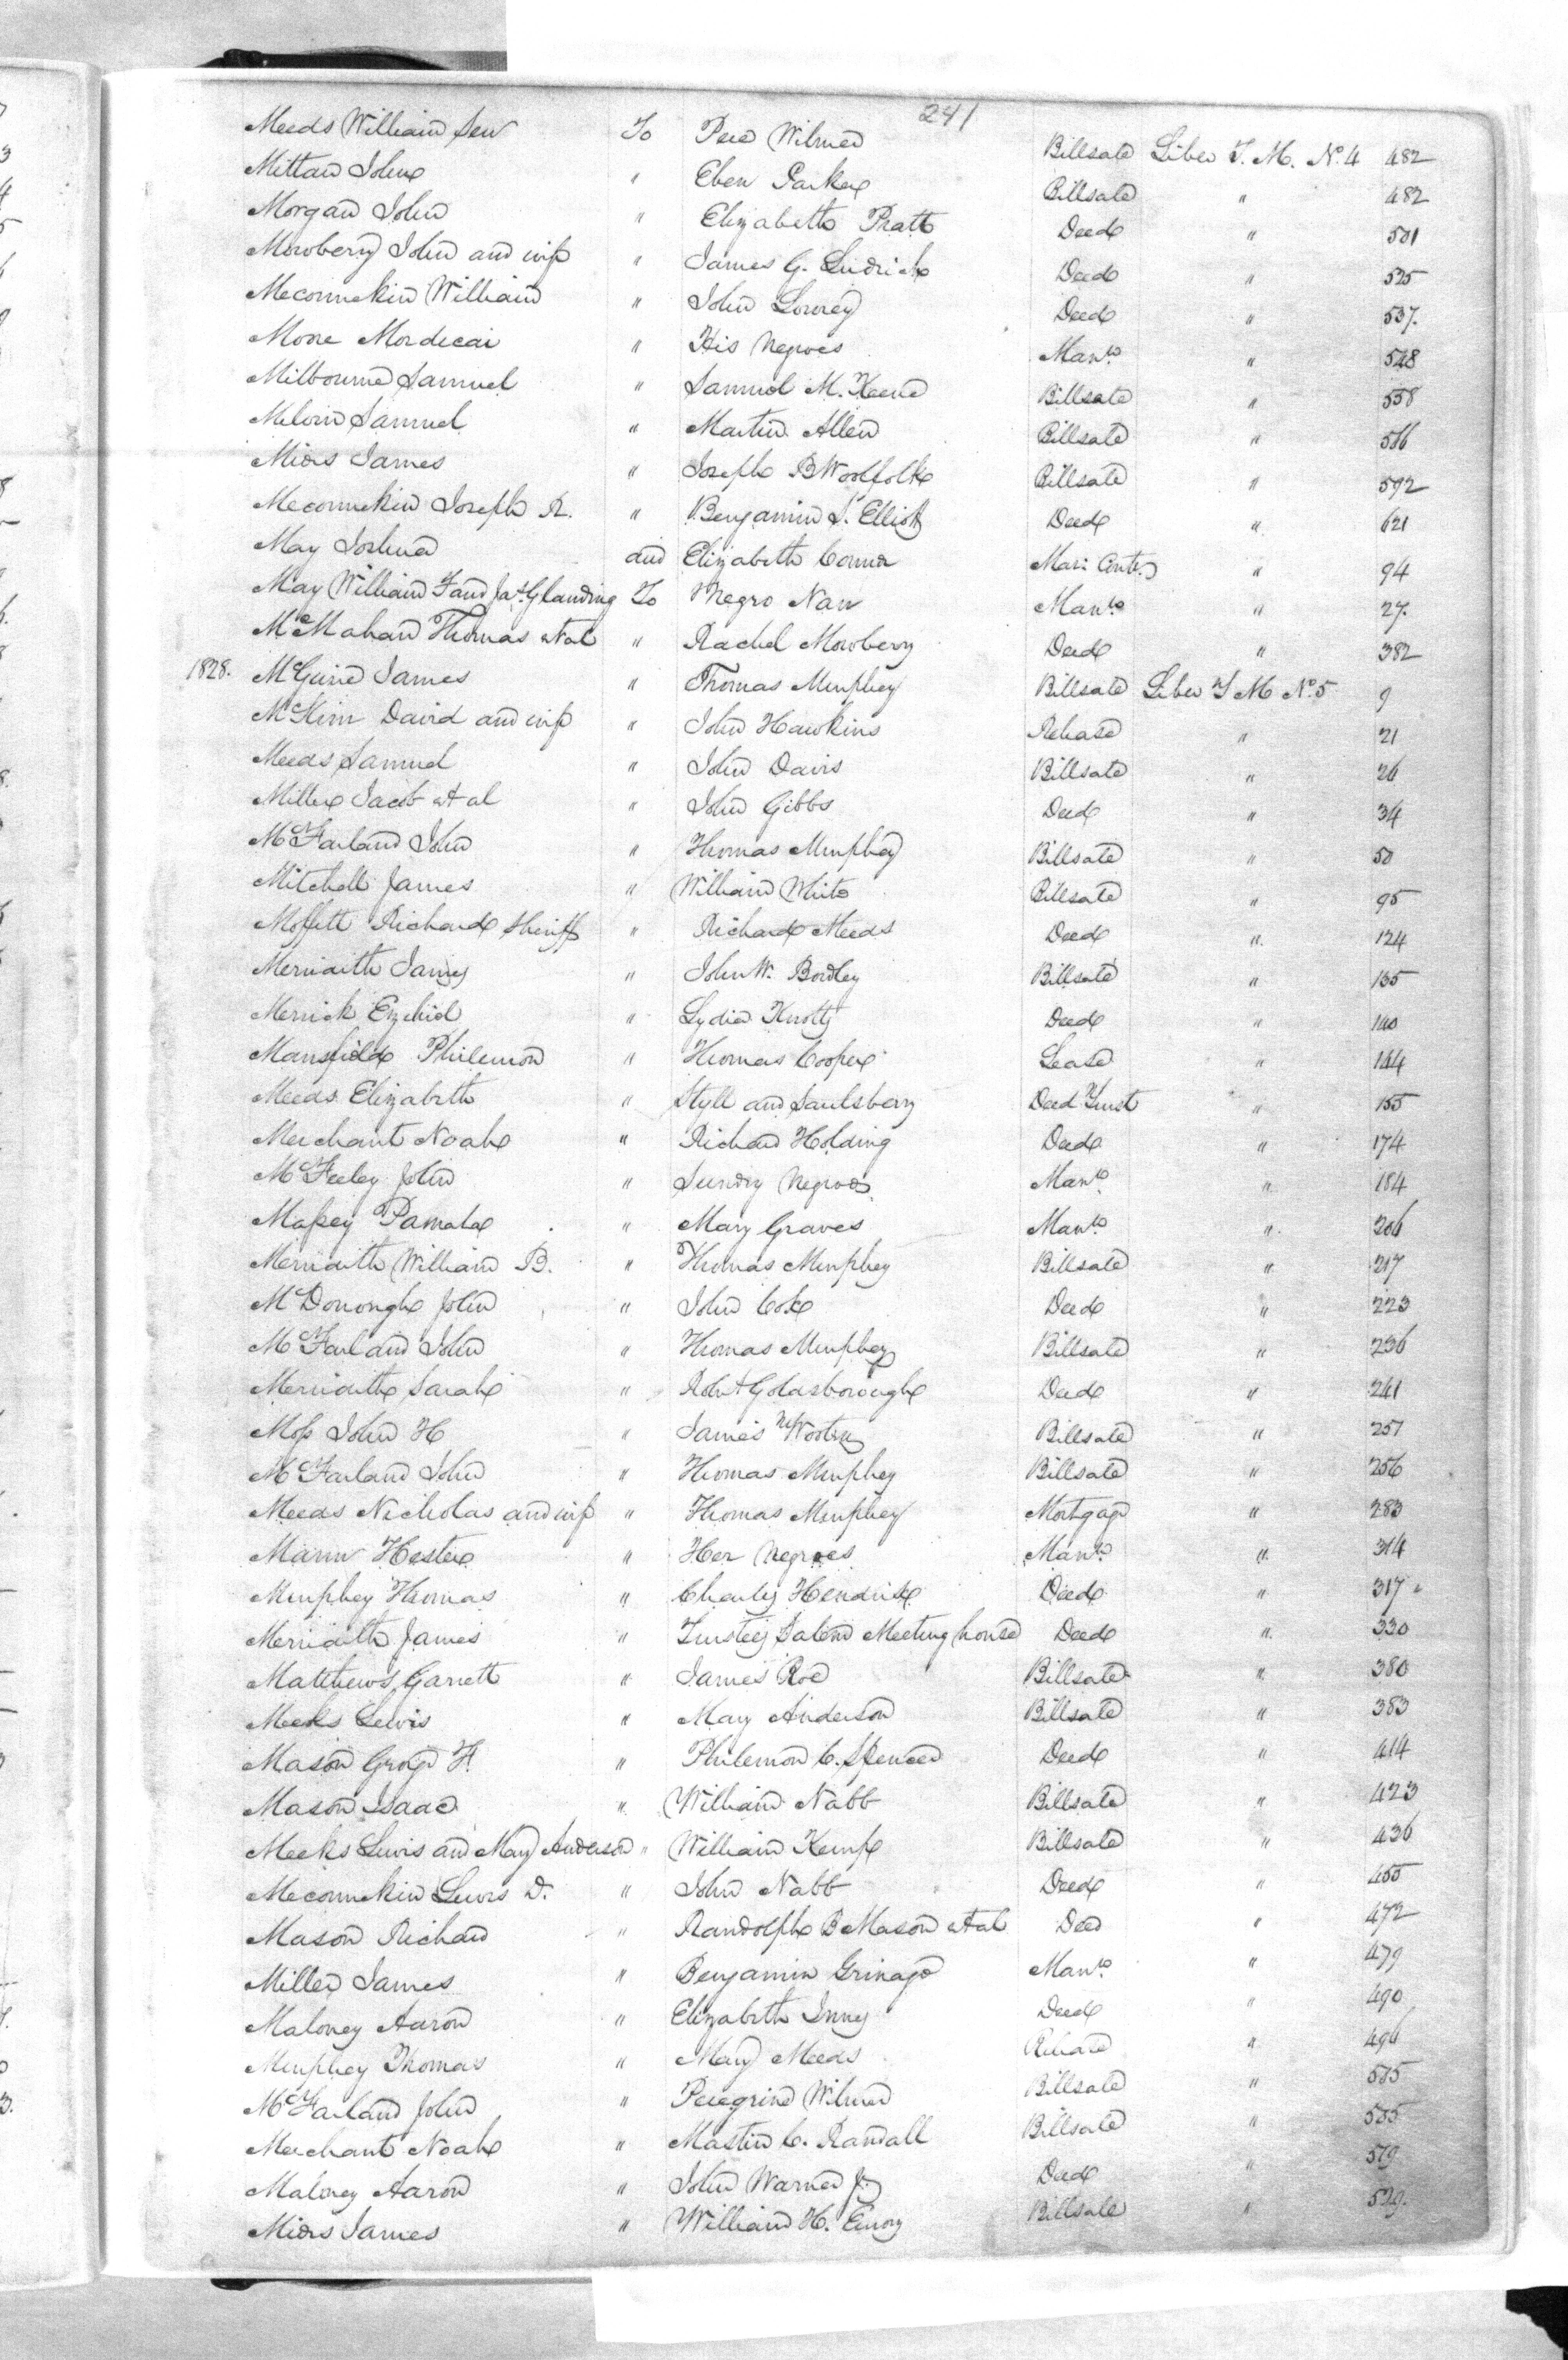 241
Meeds William Senr To Pere Wilmer Billsale Liber T. M. No. 4 482
Mittan John " Eben Parker Billsale " 482
Morgan John " Elizabeth Pratt Deed " 501
Mowbery John and wife " James G. Deed " 525
Meconnekin William " John Lowrey Deed " 537.
Moore Mordecai " His Negroes Manto " 548
Milbourne Samuel " Samuel M. Keene Billsale " 558
Melvin Samuel " Martin Allen Billsale " 586
Miers James " Joseph B Woolfolk Billsale " 592
Meconnekin Joseph R. " Benjamin S. Elliott Deed " 621
May Joshua and Elizabeth Conner Mari: Contr. " 94
May William F and Jas. Glanding To Negro Nan Manto " 27.
McMahan Thomas et al " Rachel Mowbery Deed " 382
1828. McGuire James " Thomas Murphey Billsale Liber T M No. 5 9
McKim David and wife " John Hawkins Release " 21
Meeds Samuel " John Davis Billsale " 26
Miller Jacob et al " John Gibbs Deed " 34
McFarland John " Thomas Murphey Billsale " 50
Mitchell James " William White Billsale " 95
Moffett Richard Sheriff " Richard Meeds Deed " 124
Merridith James " John W. Bordley Billsale " 135
Merrick Ezekiel " Lydia Knotts Deed " 140
Mansfield Philemon " Thomas Cooper Lease " 144
Meeds Elizabeth " Styll and Saulsbery Deed Trust " 155
Merchant Noah " Richard Holding Deed " 174
McFeeley John " Sundry Negroes Manto " 184
Massey Pamela " Mary Graves Manto " 206
Merridith William B. " Thomas Murphey Billsale " 217
McDonough John " John Cole Deed " 223
McFarland John " Thomas Murphey Billsale " 236
Merridith Sarah " Robt Goldsborough Deed " 241
Moss John H " James Wootters Billsale " 251
McFarland John " Thomas Murphey Billsale " 256
Meeds Nicholas and wife " Thomas Murphey Mortgage " 283
Mann Hester " Her Negroes Manto " 314
Murphey Thomas " Charles Hendrix Deed " 317
Merridith James " Trustees Salem Meeting house Deed " 330
Matthews Garrett " James Roe Billsale " 380
Meeks Lewis " Mary Anderson Billsale " 383
Mason George F. " Philemon C. Spencer Deed " 414
Mason Isaac " William Nabb Billsale " 423
Meeks Lewis and Mary Anderson " William Kemp Billsale " 436
Meconnekin Lewis D. " John Nabb Deed " 455
Mason Richard " Randolph B Mason et al Deed " 472
Miller James " Benjamin Grinage Manto " 479
Maloney Aaron " Elizabeth Deed " 490
Murphey Thomas " Mary Meeds Release " 496
McFarland John " Peregrine Wilmer Billsale " 505
Merchant Noah " Mastin C. Randall Billsale " 505
Maloney Aaron " John Warner Jr. Deed " 519
Miers James " William H. Emory Billsale " 529.